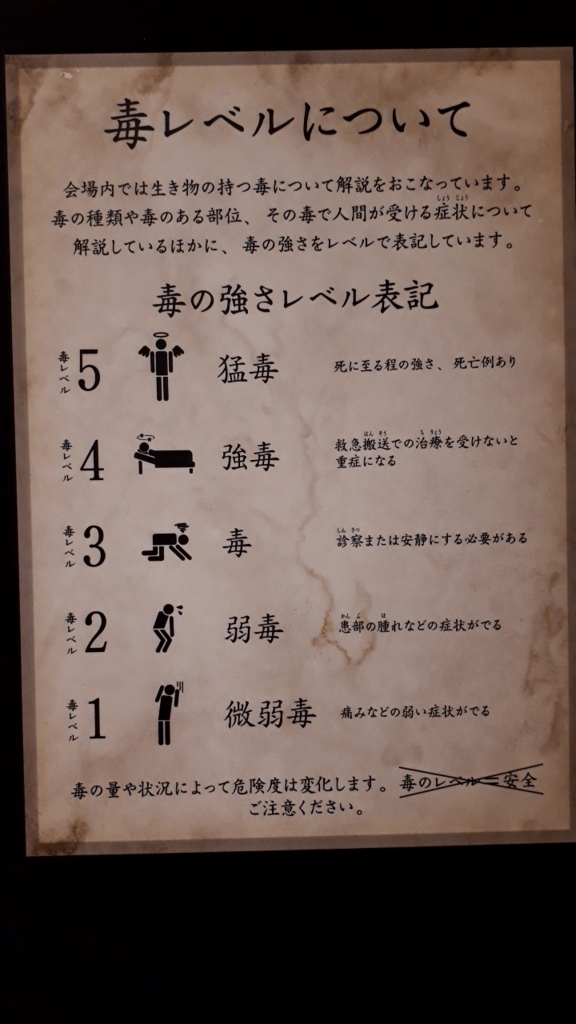 毒レベルについて
会場内では生き物の持つ毒について解説をおこなっています。
毒の種類や毒のある部位、その毒で人間が受ける症状について
解説しているほかに、毒の強さをレベルで表記しています。
毒の強さレベル表記
毒レベル 5 猛毒 死に至る程の強さ、死亡例あり
毒レベル 4 強毒 救急搬送での治療を受けないと
重症になる
毒レベル 3 毒 診察または安静にする必要がある
毒レベル 2 弱毒 患部の腫れなどの症状がでる
毒レベル 1 微弱毒 痛みなどの弱い症状がでる
毒の量や状況によって危険度は変化します。 毒のレベル＝安全
ご注意ください。